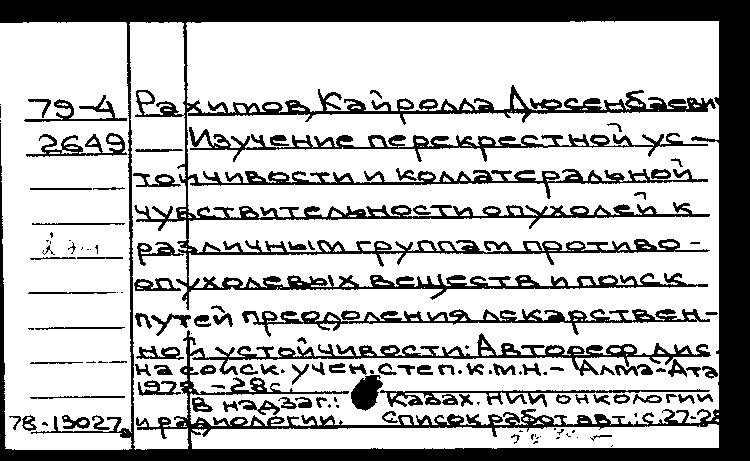 79-4 Рахимов, Кайролла Дюсенбаевич
2649 Изучение перекрестной ус-
тойчивости и коллатеральной
чувствительности опухолей к
различным группам противо-
опухолевых веществ и поиск
путей преодоления лекарствен-
ной устойчивости: Автореф. дис.
на соиск. учен. степ. к.м.н. - Алма-Ата
1978. - 28с.
В надзаг.: Казах. НИИ онкологии
78-13027 и радиологии. Список работ авт.: с.27-28